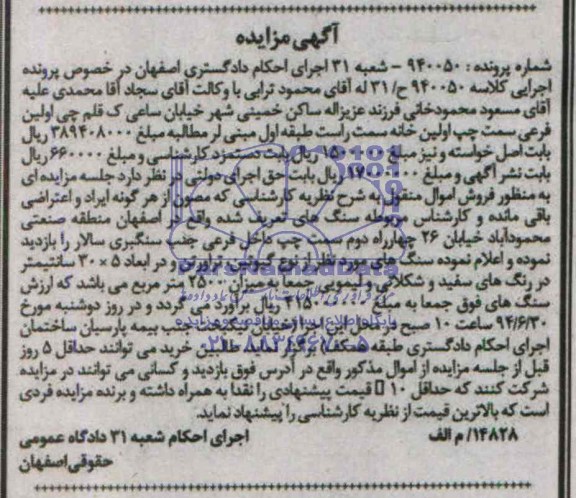 آگهی مزایده
شماره پرونده : ۹۴۰۰۵۰ – شعبه ۳۱ اجرای احکام دادگستری اصفهان در خصوص پرونده
اجرایی کلاسه ۹۴۰۰۵۰ ح/ ۳۱ له آقای محمود ترابی با وکالت آقای سجاد آقا محمدی علیه
آقای مسعود محمودخانی فرزند عزیزاله ساکن خمینی شهر خیابان ساعی ک قلم چی اولین
فرعی سمت چپ اولین خانه سمت راست طبقه اول مبنی لر مطالبه مبلغ ۳۸۹۴۰۸۰۰۰ ریال
بابت اصل خواسته و نیز مبلغ ریال بابت دستمزد کارشناسی و مبلغ ۶۶۰۰۰۰ ریال
بابت نشر آگهی و مبلغ ریال بابت حق اجرای دولتی در نظر دارد جلسه مزایده ای
به منظور فروش اموال منقول به شرح نظریه کارشناسی که مصون از هر گونه ایراد و اعتراضی
باقی مانده و کارشناس مربوطه سنگ های تعریف شده واقع در اصفهان منطقه صنعتی
محمودآباد خیابان ۲۶ چهارراه دوم سمت چپ داخل فرعی جنب سنگبری سالار را بازدید
نموده و اعلام نموده سنگ های مورد نظر از نوع گوهره تراورتن در ابعاد ۵ × ۳۰ سانتیمتر
در رنگ های سفید و شکلاتی و لیمویی جمعا به میزان ۲۵۰۰ متر مربع می باشد که ارزش
سنگ های فوق جمعا به مبلغ ریال برآورد می گردد و در روز دوشنبه مورخ
۹۴/۶/۳۰ ساعت ۱۰ صبح در محل این اجرا خیابان نیکبخت جنب بیمه پارسیان ساختمان
اجرای احکام دادگستری طبقه همکف برگزار نماید. طالبین خرید می توانند حداقل ۵ روز
قبل از جلسه مزایده از اموال مذکور واقع در آدرس فوق بازدید و کسانی می توانند در مزایده
شرکت کنند که حداقل ۱۰ قیمت پیشنهادی را نقدا به همراه داشته و برنده مزایده فردی
است که بالاترین قیمت از نظریه کارشناسی را پیشنهاد نماید.
۱۴۸۲۸/ م الف
اجرای احکام شعبه ۳۱ دادگاه عمومی
حقوقی اصفهان
ParsNamadData